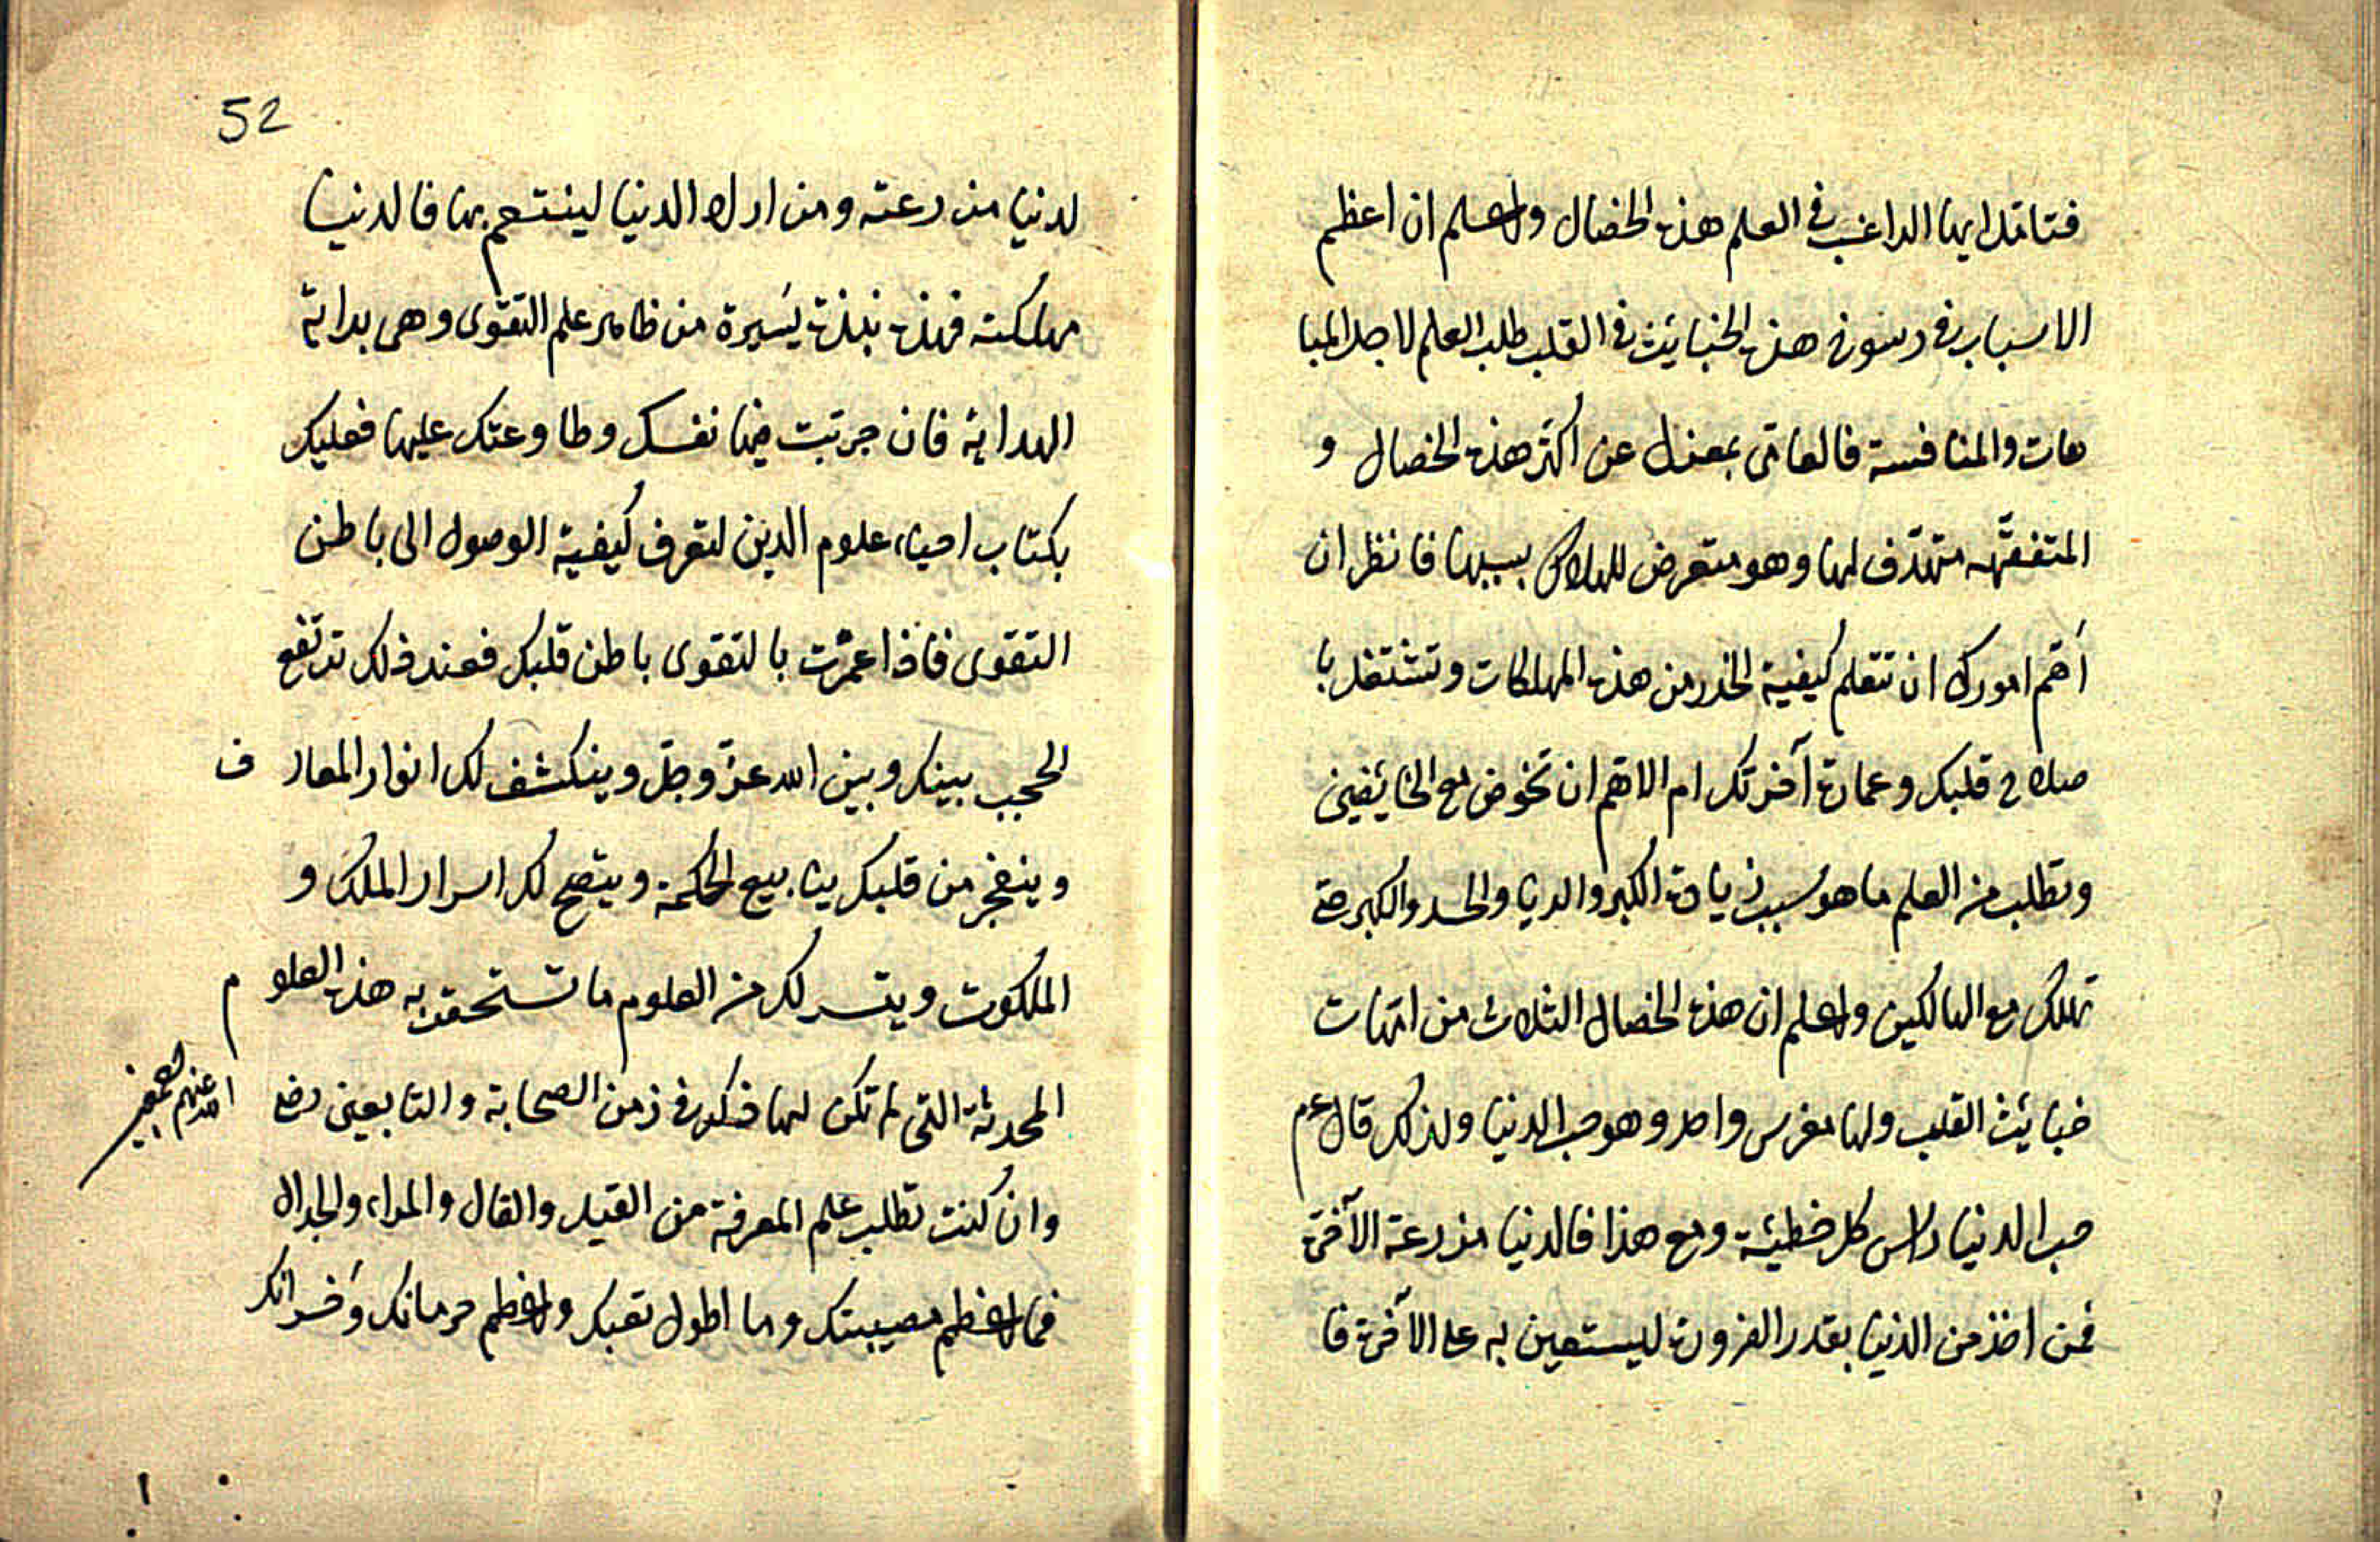 فتامل ايها الراغب في العلم هذه الخصال واعلم ان اعظم
الاسباب في رسوخ هذه الخبائث في القلب طلب العلم لاجل المبا
هات والمنافسة فالعامى بمعزل عن اكثر هذه الخصال و
المتفقّه متهدّف لها وهو متعرض للهلاك بسببها فانظر ان
اَهّم امورك ان تتعلم كيفية الحذر من هذه المهلكات وتشتغل با
صلاح قلبك وعمارة آخرتك ام الاهم ان تخوض مع الخائضين
وتطلب من العلم ما هو سبب زيادة الكبر والريا والحسد والكبر حتى
تهلك مع الهالكين واعلم ان هذه الخصال الثلاث من امّهات
خبائث القلب ولها مغرس واحد وهو حب الدنيا ولذلك قال عم
حب الدنيا رأس كل خطيئة ومع هذا فالدنيا مزرعة الآخرة
فمن اخذ من الدنيا بقدر الضرورة ليستعين به على الآخرة فا
52
لدنيا مزرعته ومن اراد الدنيا لينتعم بها فالدنيا
مهلكته فهذه نبذة يَسيرة من ظاهر علم التقوى وهى بداية
الهداية فان جربت فيها نفسك وطاوعتك عليها فعليك
بكتاب احياء علوم الدين لتعرف كيفية الوصول الى باطن
التقوى فاذا عمّرت بالتقوى باطن قلبك فعند ذلك ترتفع
الحجب بينك وبين الله عزّ وجلّ وينكشف لك انوار المعارف
وينفجر من قلبك ينابيع الحكمة ويتضح لك اسرار الملك و
الملكوت ويتسر لك من العلوم ما تستحقر به هذه العلوم
المحدثة التى لم تكن لها ذكر في زمن الصحابة والتابعين رضى
الله عنهم اجمعين
وان كنت تطلب علم المعرفة من القيل والقال والمراء والجدال
فما اعظم مصيبتك وما اطول تعبك واعظم حرمانك وَخسرانك